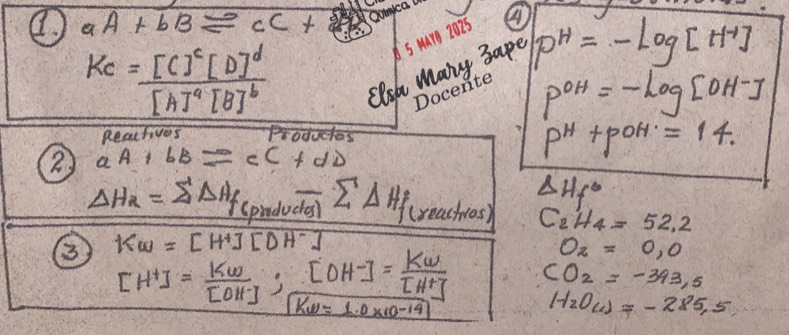 1. aA + bB ⇌ cC +
Kc = [C]ᶜ [D]ᵈ
[A]ᵃ [B]ᵇ
Química
05 MAYO 2025
Elsa Mary Zape
Docente
4
pH = -Log [H+]
pOH = -Log [OH-]
pH + pOH = 14.
Reactivos Productos
2. aA + bB ⇌ cC + dD
ΔHR = ΣΔHf(productos) - ΣΔHf(reactivos)
3 Kw = [H+][OH-]
[H+] = Kw / [OH-] ; [OH-] = Kw / [H+]
Kw = 1.0 x10-14
ΔHf°
C2H4 = 52,2
O2 = 0,0
CO2 = -393,5
H2O(l) = -285,5